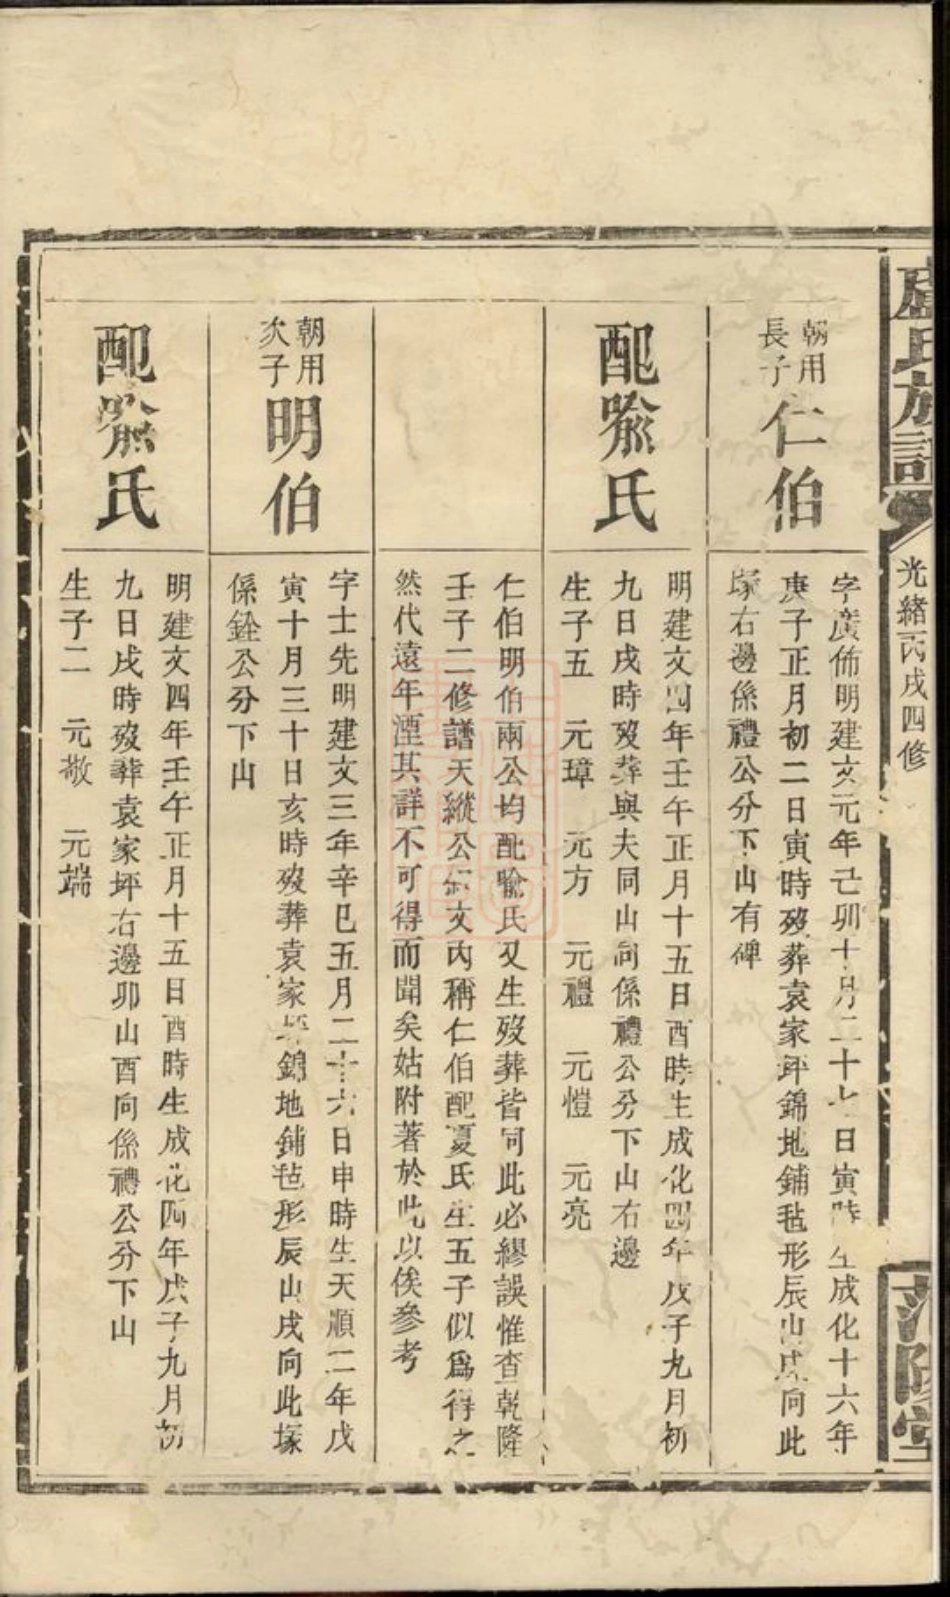 盧氏族譜
光緒丙戌四修
范陽堂
朝用
長子
仁伯
字廣佈明建文元年己卯十月二十七日寅時生成化十六年
庚子正月初二日寅時歿葬袁家坪錦地鋪毡形辰山戌向此
塚右邊係禮公分下山有碑
配喻氏
明建文四年壬午正月十五日酉時生成化四年戊子九月初
九日戌時歿葬與夫同山向係禮公分下山右邊
生子五 元璋 元方 元禮 元愷 元亮
仁伯明伯兩公均配喻氏又生歿葬皆同此必繆誤惟查乾隆
壬子二修譜天縱公文內稱仁伯配夏氏生五子似為得之
然代遠年湮其詳不可得而聞矣姑附著於此以俟參考
朝用
次子
明伯
字士先明建文三年辛巳五月二十六日申時生天順二年戊
寅十月三十日亥時歿葬袁家坪錦地鋪毡形辰山戌向此塚
係銓公分下山
配喻氏
明建文四年壬午正月十五日酉時生成化四年戊子九月初
九日戌時歿葬袁家坪右邊卯山酉向係禮公分下山
生子二 元敬 元端